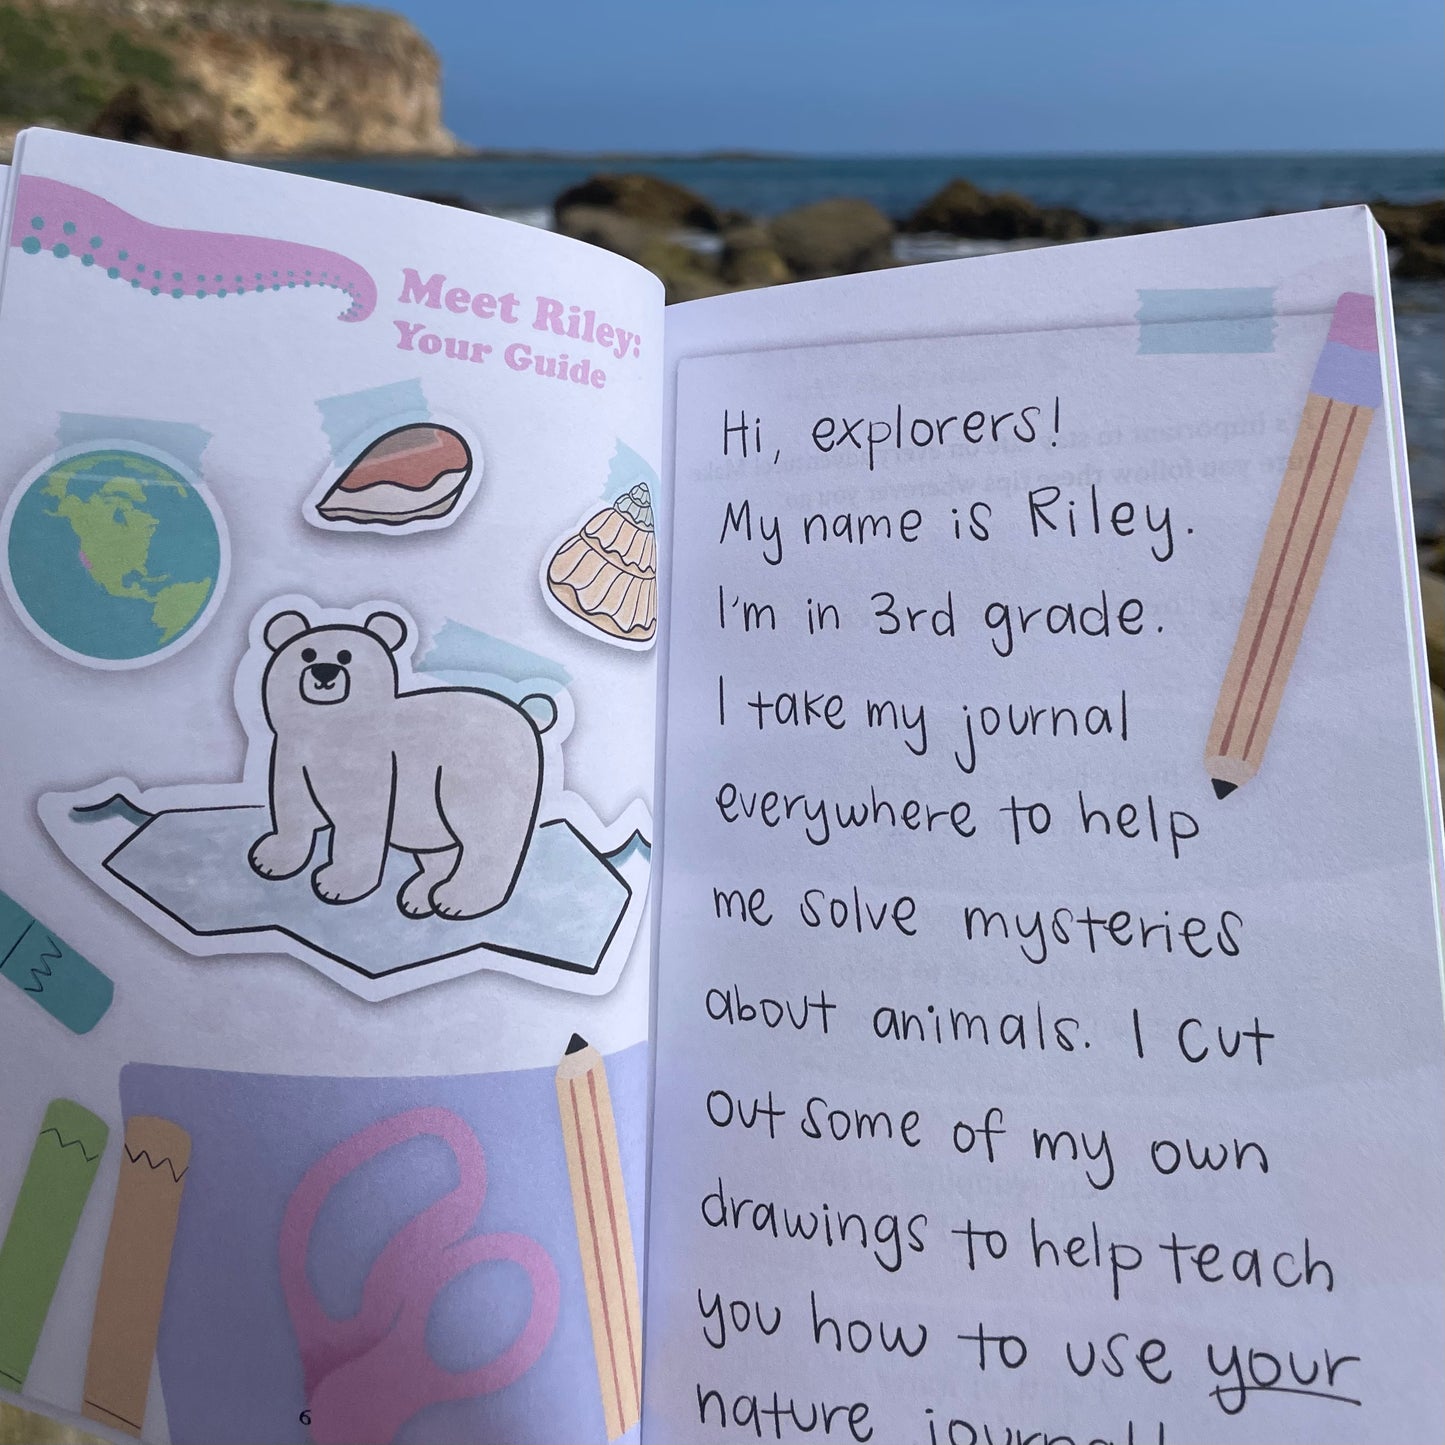 Meet Riley:
Your Guide
6
Hi, explorers!
My name is Riley.
I'm in 3rd grade.
I take my journal
everywhere to help
me solve mysteries
about animals. I cut
out some of my own
drawings to help teach
you how to use your
nature journal!